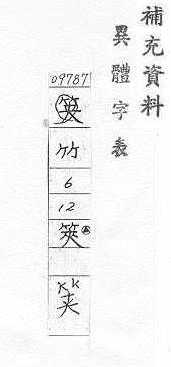 補充資料
異體字表
09787
竹
6
12
筴